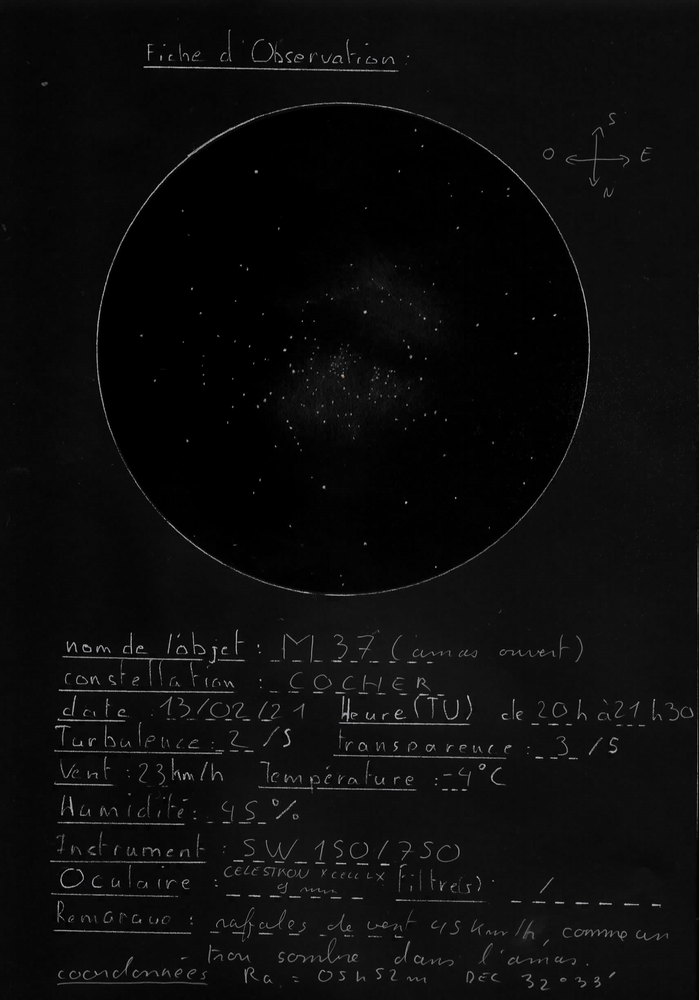 Fiche d'Observation :
S
O E
N
nom de l'objet : M 37 (amas ouvert)
constellation : COCHER
date : 13/02/21 Heure (TU) de 20h à 21h30
Turbulence : 2 /5 transparence : 3 /5
Vent : 23 km/h Température : -4°C
Humidité : 45 %
Instrument : SW 150/750
Oculaire : CELESTRON X CELL LX filtre(s) : /
9 mm
Remarque : raffales de vent 45 km/h, comme un
trou sombre dans l'amas.
coordonnées Ra = 05h52m DEC 32°33'